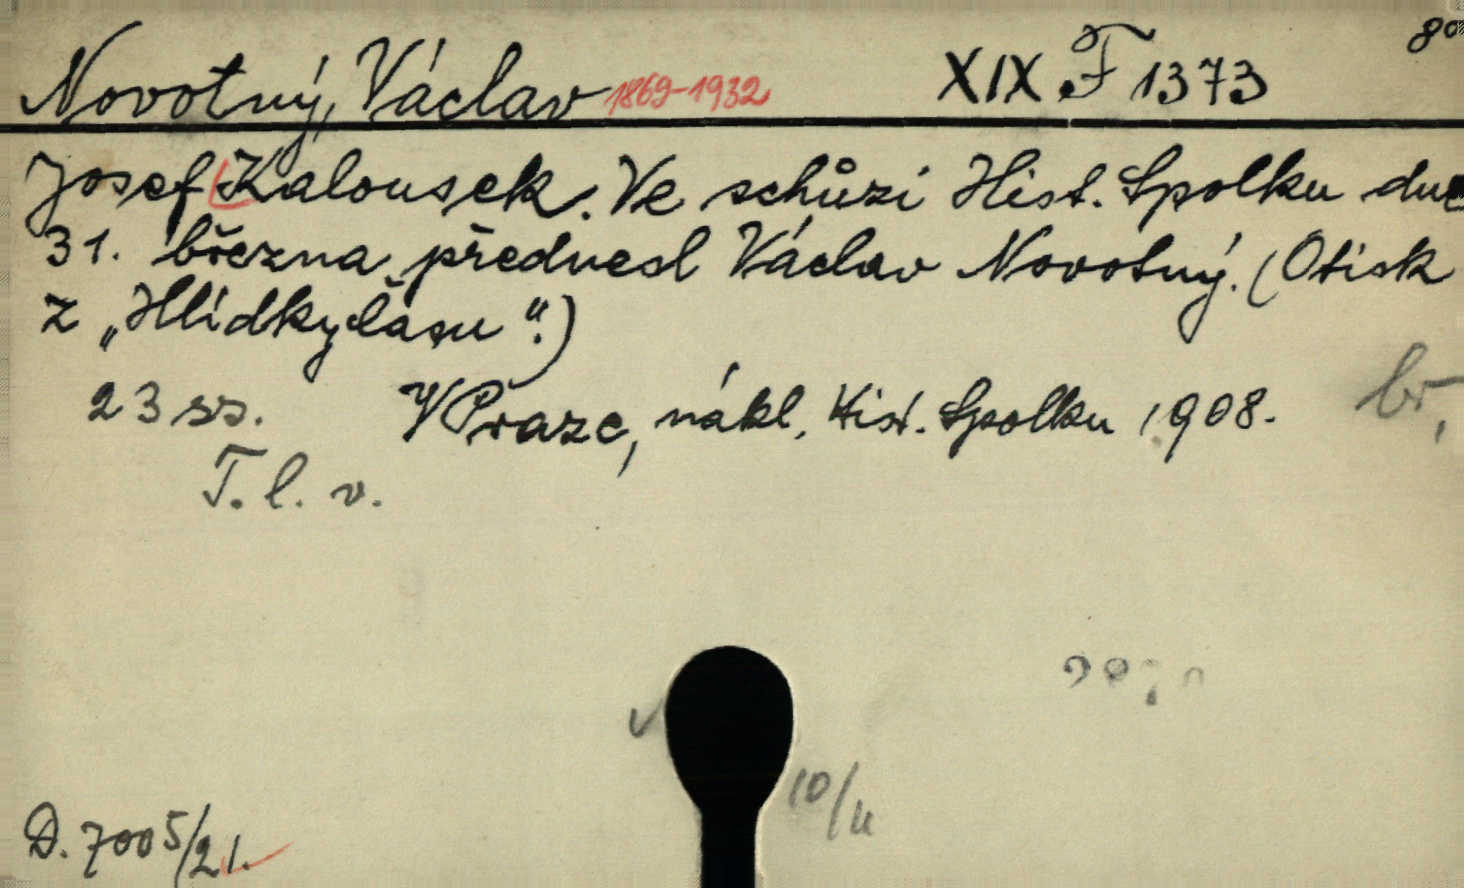 8°
Novotný, Václav 1869-1932 XIX F 1373
Josef Kalousek. Ve schůzi Hist. Spolku dne
31. března přednesl Václav Novotný. (Otisk
z „Hlídky Času“.)
23 ss. V Praze, nákl. Hist. Spolku 1908. br.
T. l. v.
10/
D. 7005/21.